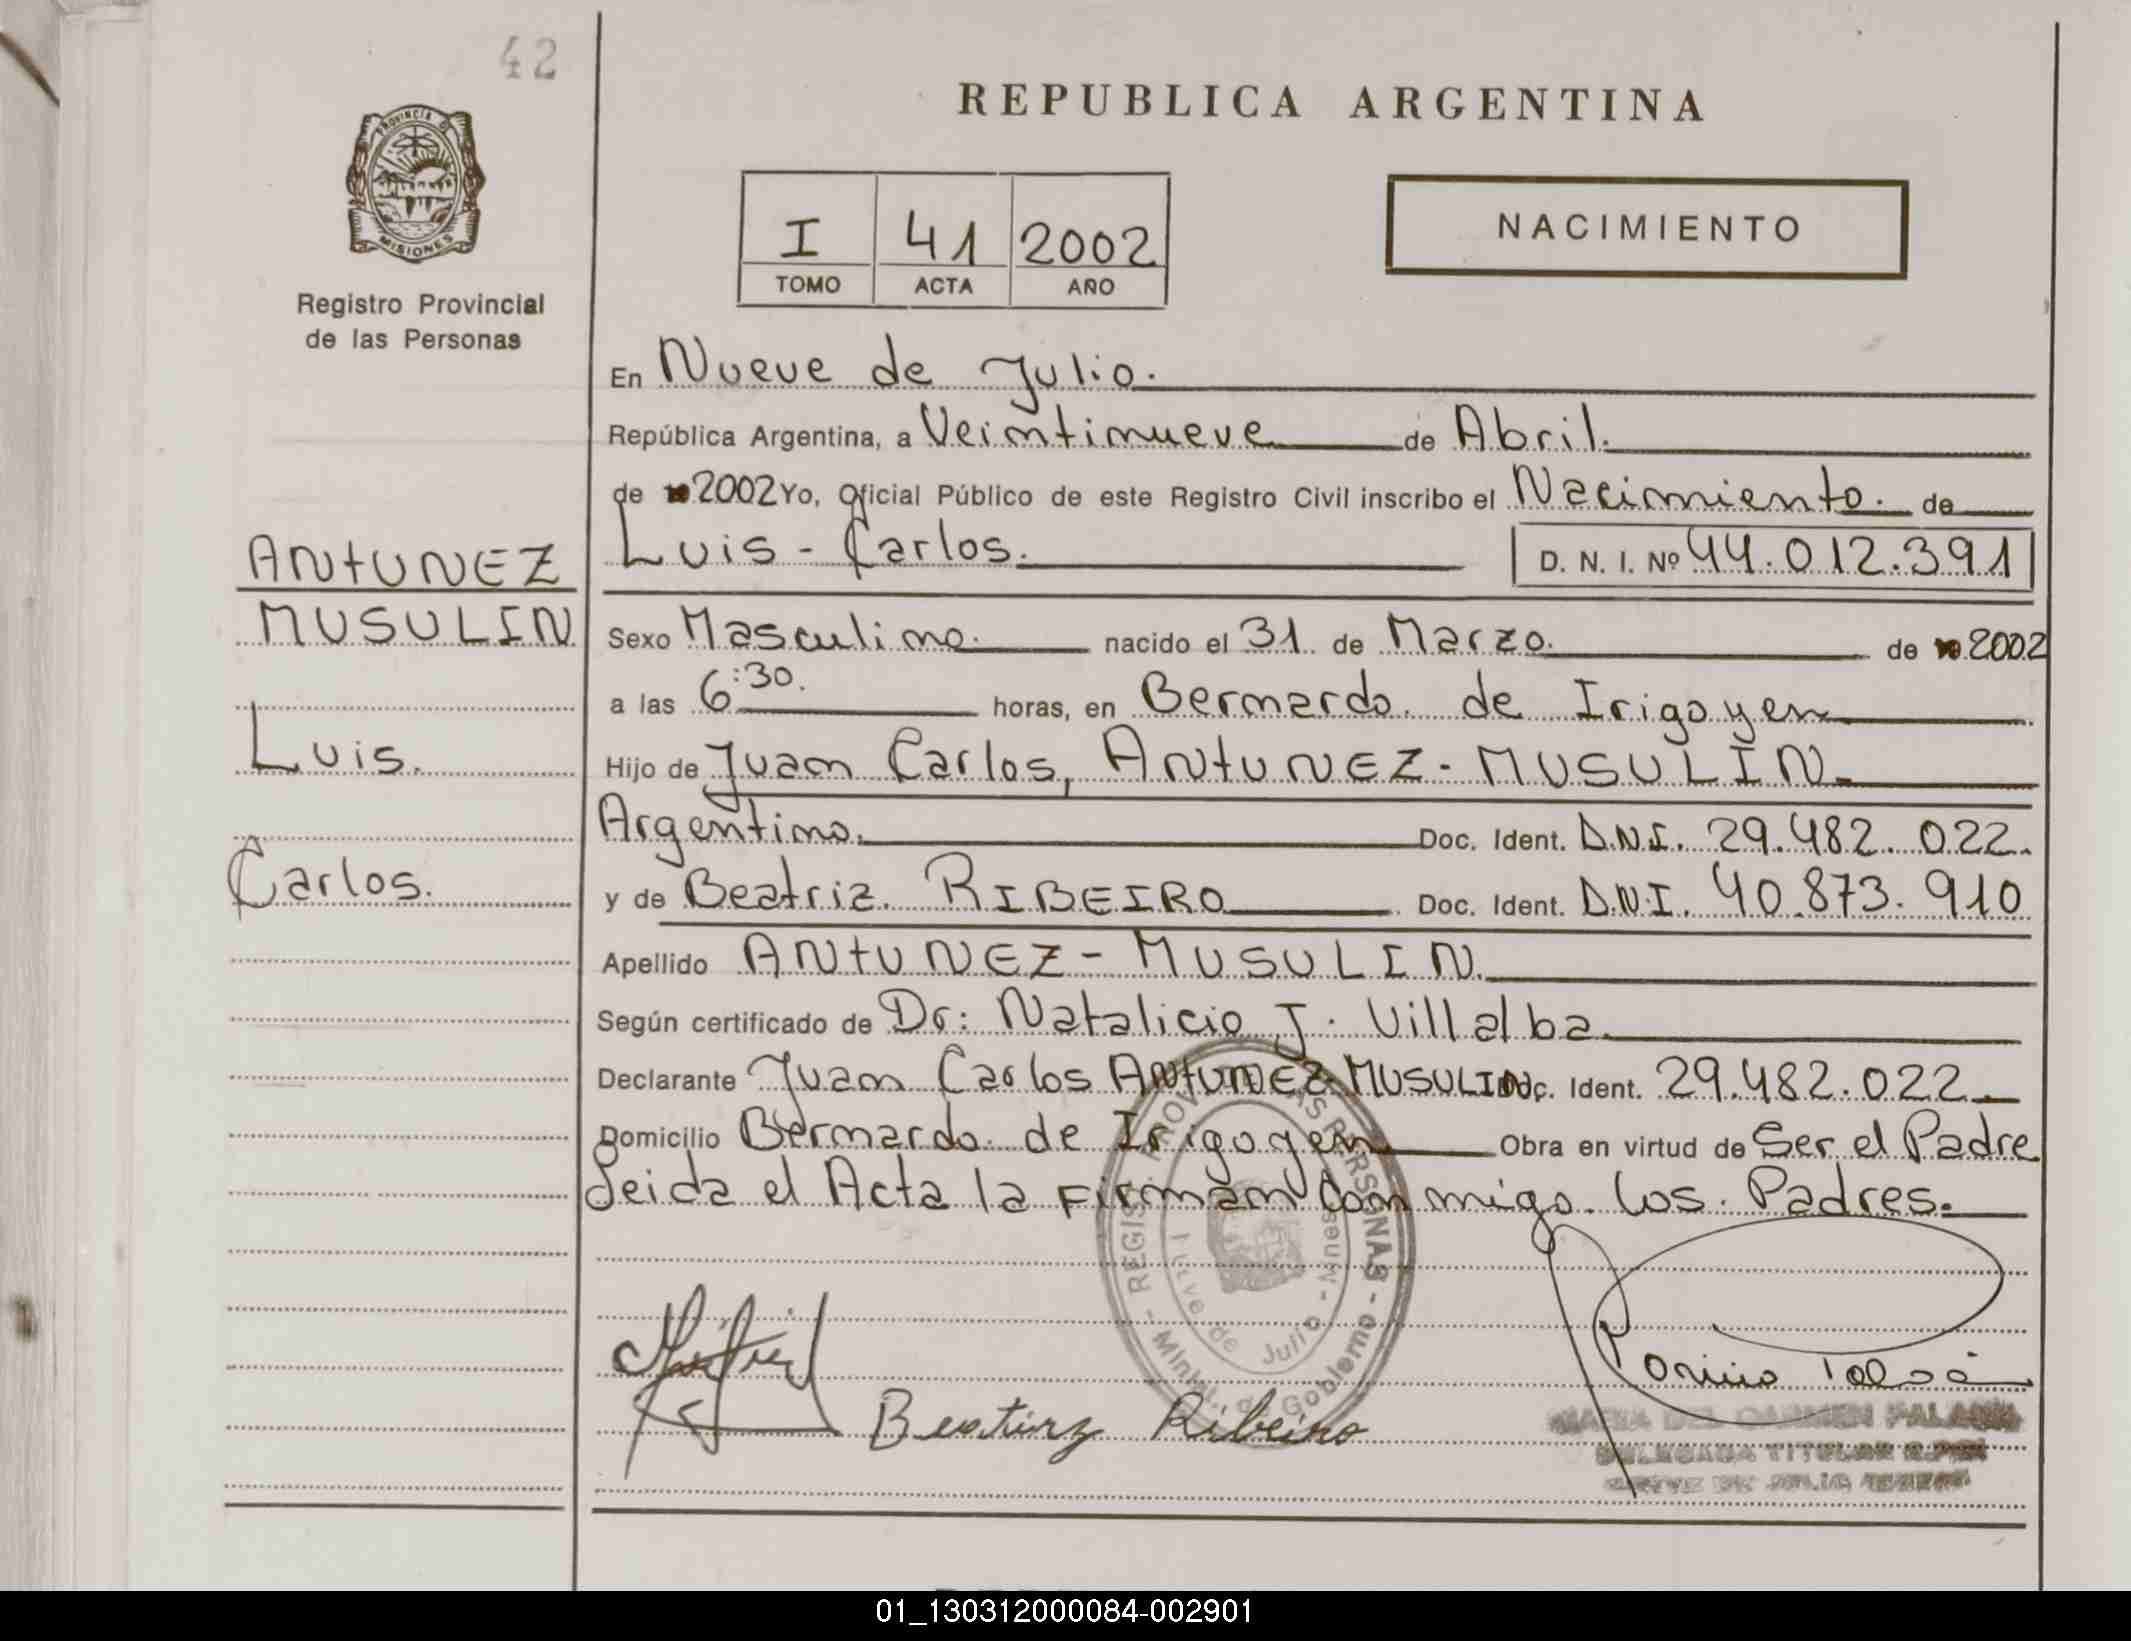 42
REPUBLICA ARGENTINA
PROVINCIA D
MISIONES
Registro Provincial
de las Personas
I 41 2002
TOMO ACTA AÑO
NACIMIENTO
En Nueve de Julio.
República Argentina, a Veintinueve de Abril.
de 2002 Yo, Oficial Público de este Registro Civil inscribo el Nacimiento. de
Luis - Carlos. D. N. I. Nº 44.012.391
ANTUNEZ
MUSULIN
Luis.
Carlos.
Sexo Masculino. nacido el 31 de Marzo. de 2002
a las 6:30. horas, en Bernardo de Irigoyen
Hijo de Juan Carlos, ANTUNEZ - MUSULIN.
Argentino. Doc. Ident. D.N.I. 29.482.022.
y de Beatriz. RIBEIRO Doc. Ident. D.N.I. 40.873.910
Apellido ANTUNEZ - MUSULIN.
Según certificado de Dr: Natalicio J. Villalba.
Declarante Juan Carlos ANTUNEZ MUSULIN Doc. Ident. 29.482.022
Domicilio Bernardo de Irigoyen Obra en virtud de Ser el Padre
Leida el Acta la Firman Conmigo los Padres.
REGIS. PROV. AS PERSONAS - Minist. de Gobierno -
Nueve de Julio - Mnes
Beatriz Ribeiro
MARIA DEL CARMEN
DELEGADA TITULAR
NUEVE DE JULIO
01_130312000084-002901